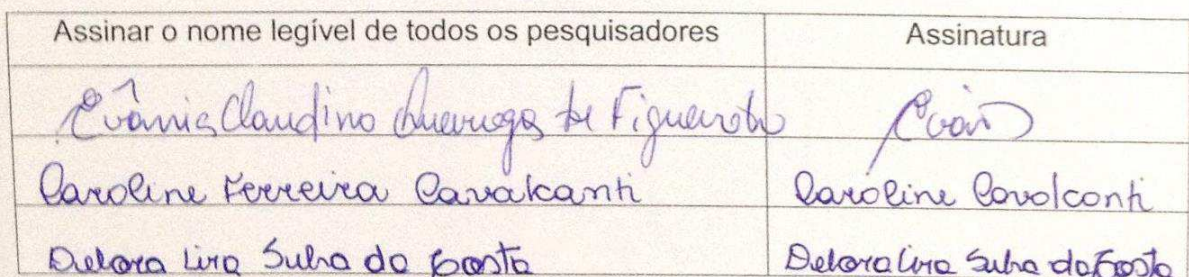 Assinar o nome legível de todos os pesquisadores Assinatura
Evânia Claudino Queiroga de Figueiredo Evân
Caroline Ferreira Cavalcanti Caroline Cavalcanti
Debora Lira Silva da Costa Debora Lira Silva da Costa